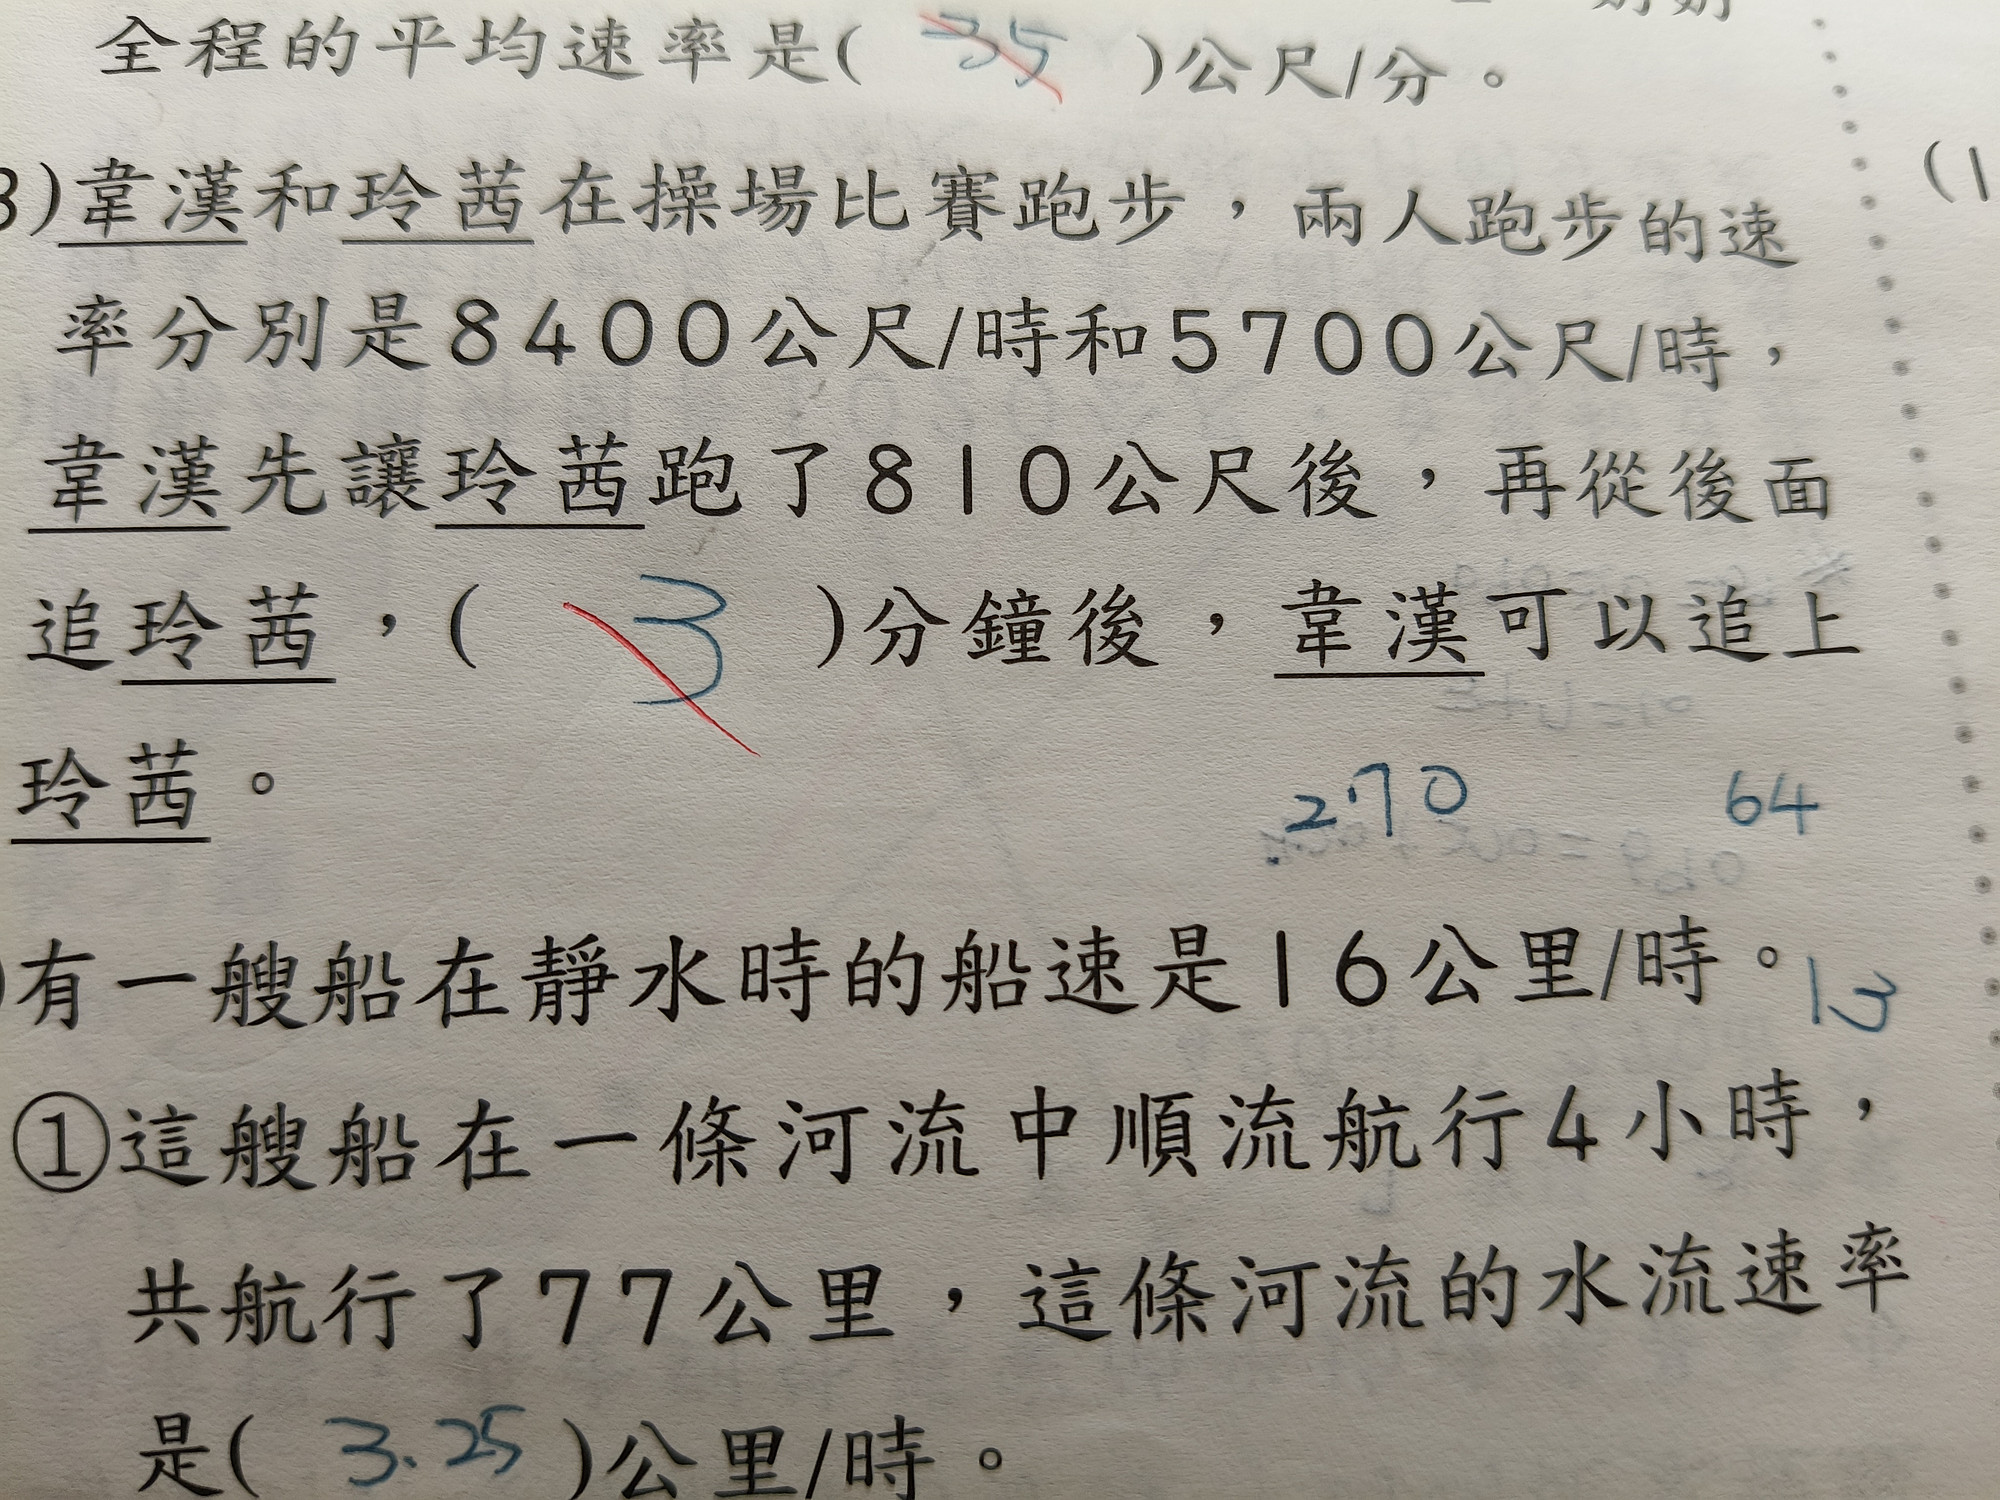 全程的平均速率是( 35 )公尺/分。
3)韋漢和玲茜在操場比賽跑步，兩人跑步的速
率分別是8400公尺/時和5700公尺/時，
韋漢先讓玲茜跑了810公尺後，再從後面
追玲茜，( 3 )分鐘後，韋漢可以追上
玲茜。
270 64
)有一艘船在靜水時的船速是16公里/時。13
①這艘船在一條河流中順流航行4小時，
共航行了77公里，這條河流的水流速率
是( 3.25 )公里/時。
(1